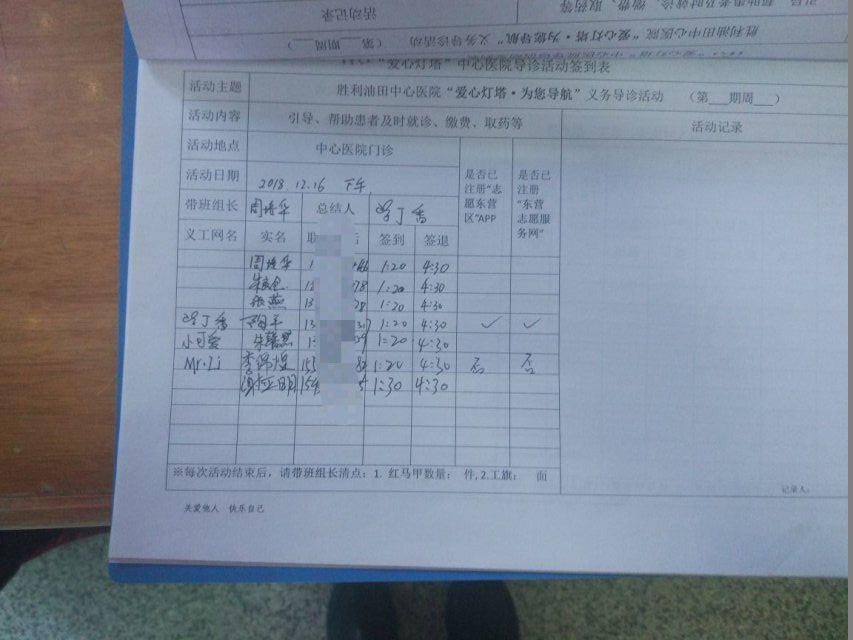 "爱心灯塔"中心医院导诊活动签到表
活动主题 胜利油田中心医院"爱心灯塔·为您导航"义务导诊活动 （第___期周___）
活动内容 引导、帮助患者及时就诊、缴费、取药等 活动记录
活动地点 中心医院门诊 是否已注册"志愿东营区"APP 是否已注册"东营志愿服务网"
活动日期 2018.12.16 下午
带班组长 周培华 总结人 丁香
义工网名 实名 签到 签退
周培华 1:20 4:30
1:20 4:30
张燕 1:20 4:30
丁香 1:20 4:30 ✓ ✓
小可爱 1:20 4:30
Mr.Li 李 1:20 4:30 否 否
明 1:30 4:30
※每次活动结束后，请带班组长清点：1. 红马甲数量： 件, 2.工旗： 面
记录人:
关爱他人 快乐自己